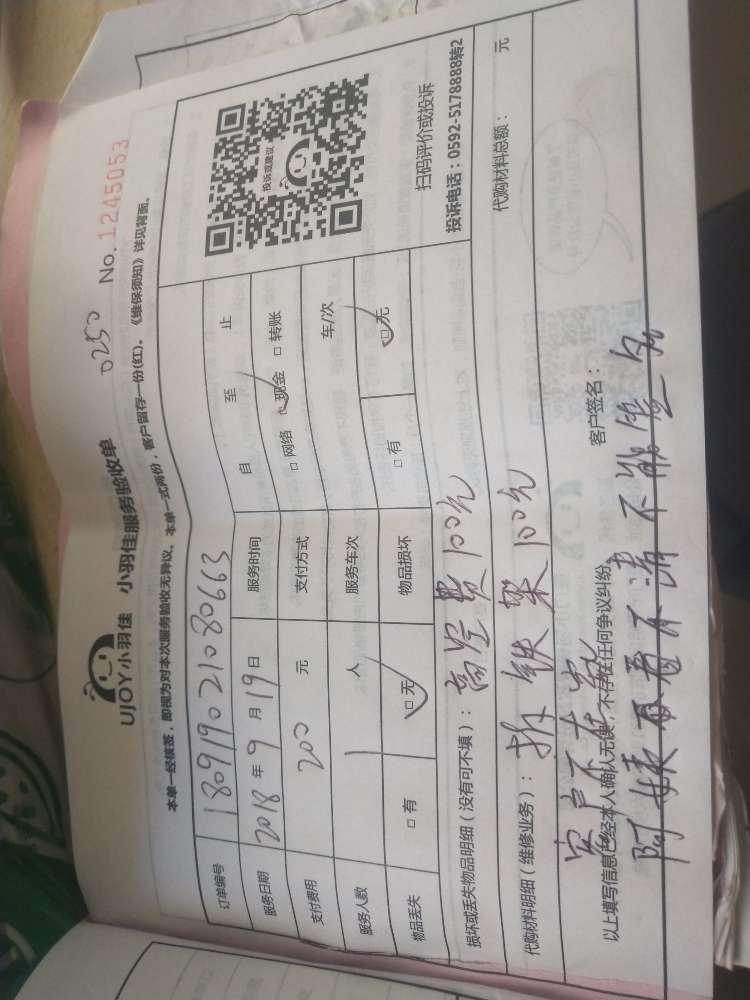 UJOY小羽佳 小羽佳服务验收单 0250 No. 1245053
本单一经核签，即视为对本次服务验收无异议。本单一式两份，客户留存一份(红)。《维保须知》详见背面。
订单编号 180919021080663
服务日期 2018年9月19日 服务时间 自 至 止
支付费用 200 元 支付方式 □网络 □现金 □转账
服务人数 1 人 服务车次 车/次
物品丢失 □有 □无 物品损坏 □有 □无
投诉或建议
扫码评价或投诉
投诉电话：0592-5178888转2
损坏或丢失物品明细（没有可不填）： 高空费100元
代购材料明细（维修业务）： 拆铁架100元 代购材料总额： 元
客户不在家
以上填写信息已经本人确认无误，不存在任何争议纠纷 客户签名：
阿姨看不清不能签名